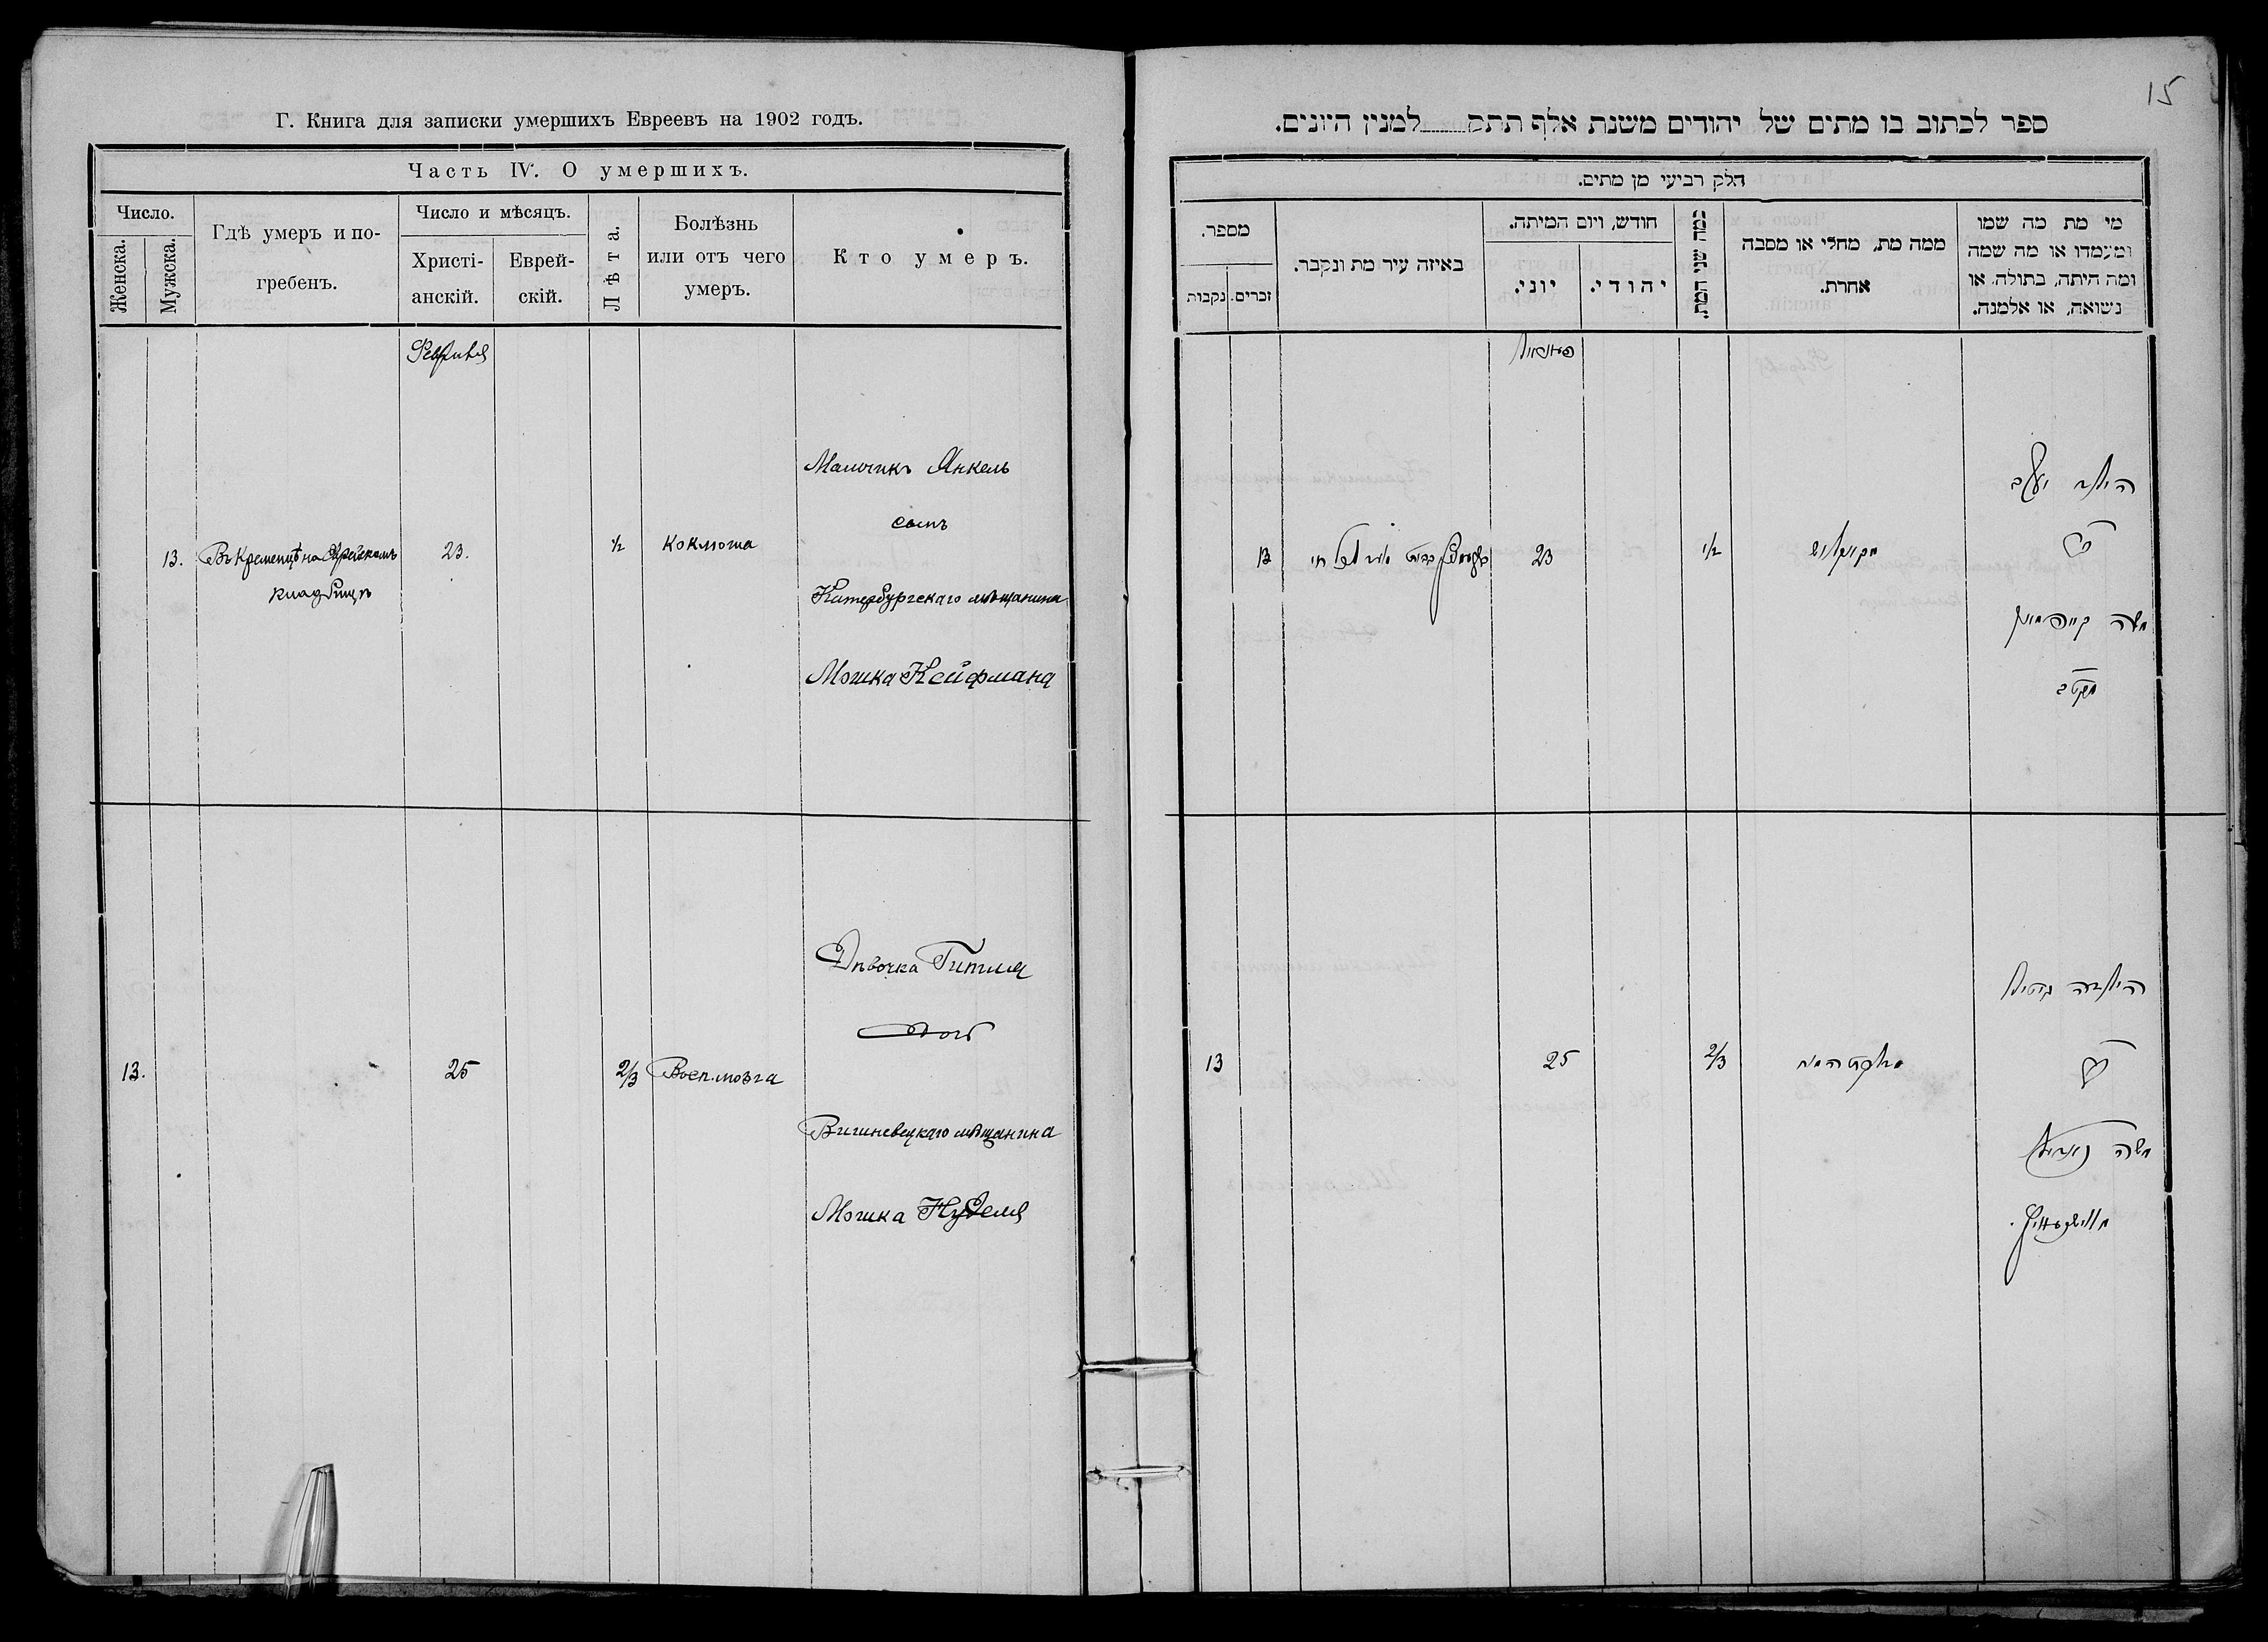 Г. Книга для записки умершихъ Евреевъ на 1902 годъ.
Часть IV. О умершихъ.
Число.
Женска.
Мужска.
Гдѣ умеръ и по-
гребенъ.
Число и мѣсяцъ.
Христі-
анскій.
Еврей-
скій.
Лѣта.
Болѣзнь
или отъ чего
умеръ.
Кто умеръ.
Февраля
13.
Въ Кременцѣ на Еврейскомъ
кладбищѣ
23.
½
коклюша
Мальчикъ Янкель
сынъ
Катербургскаго мѣщанина
Мошка Кейфмана
13.
25
2/3
Восп. мозга
Дѣвочка Гитля
дочь
Вишневецкаго мѣщанина
Мошка Нуделя
15
ספר לכתוב בו מתים של יהודים משנת אלף תתק למנין היונים.
חלק רביעי מן מתים.
מספר.
נקבות
זכרים.
באיזה עיר מת ונקבר.
חודש, ויום המיתה.
יוני.
יהודי.
כמה שני המת.
ממה מת, מחלי או מסבה
אחרת.
מי מת מה שמו
ומעמדו או מה שמה
ומה היתה, בתולה, או
נשואה, או אלמנה.
13
23
½
הילד יעקב
בן
משה קייפמאן
13
25
2/3
הילדה גיטיל
בת
משה נודיל